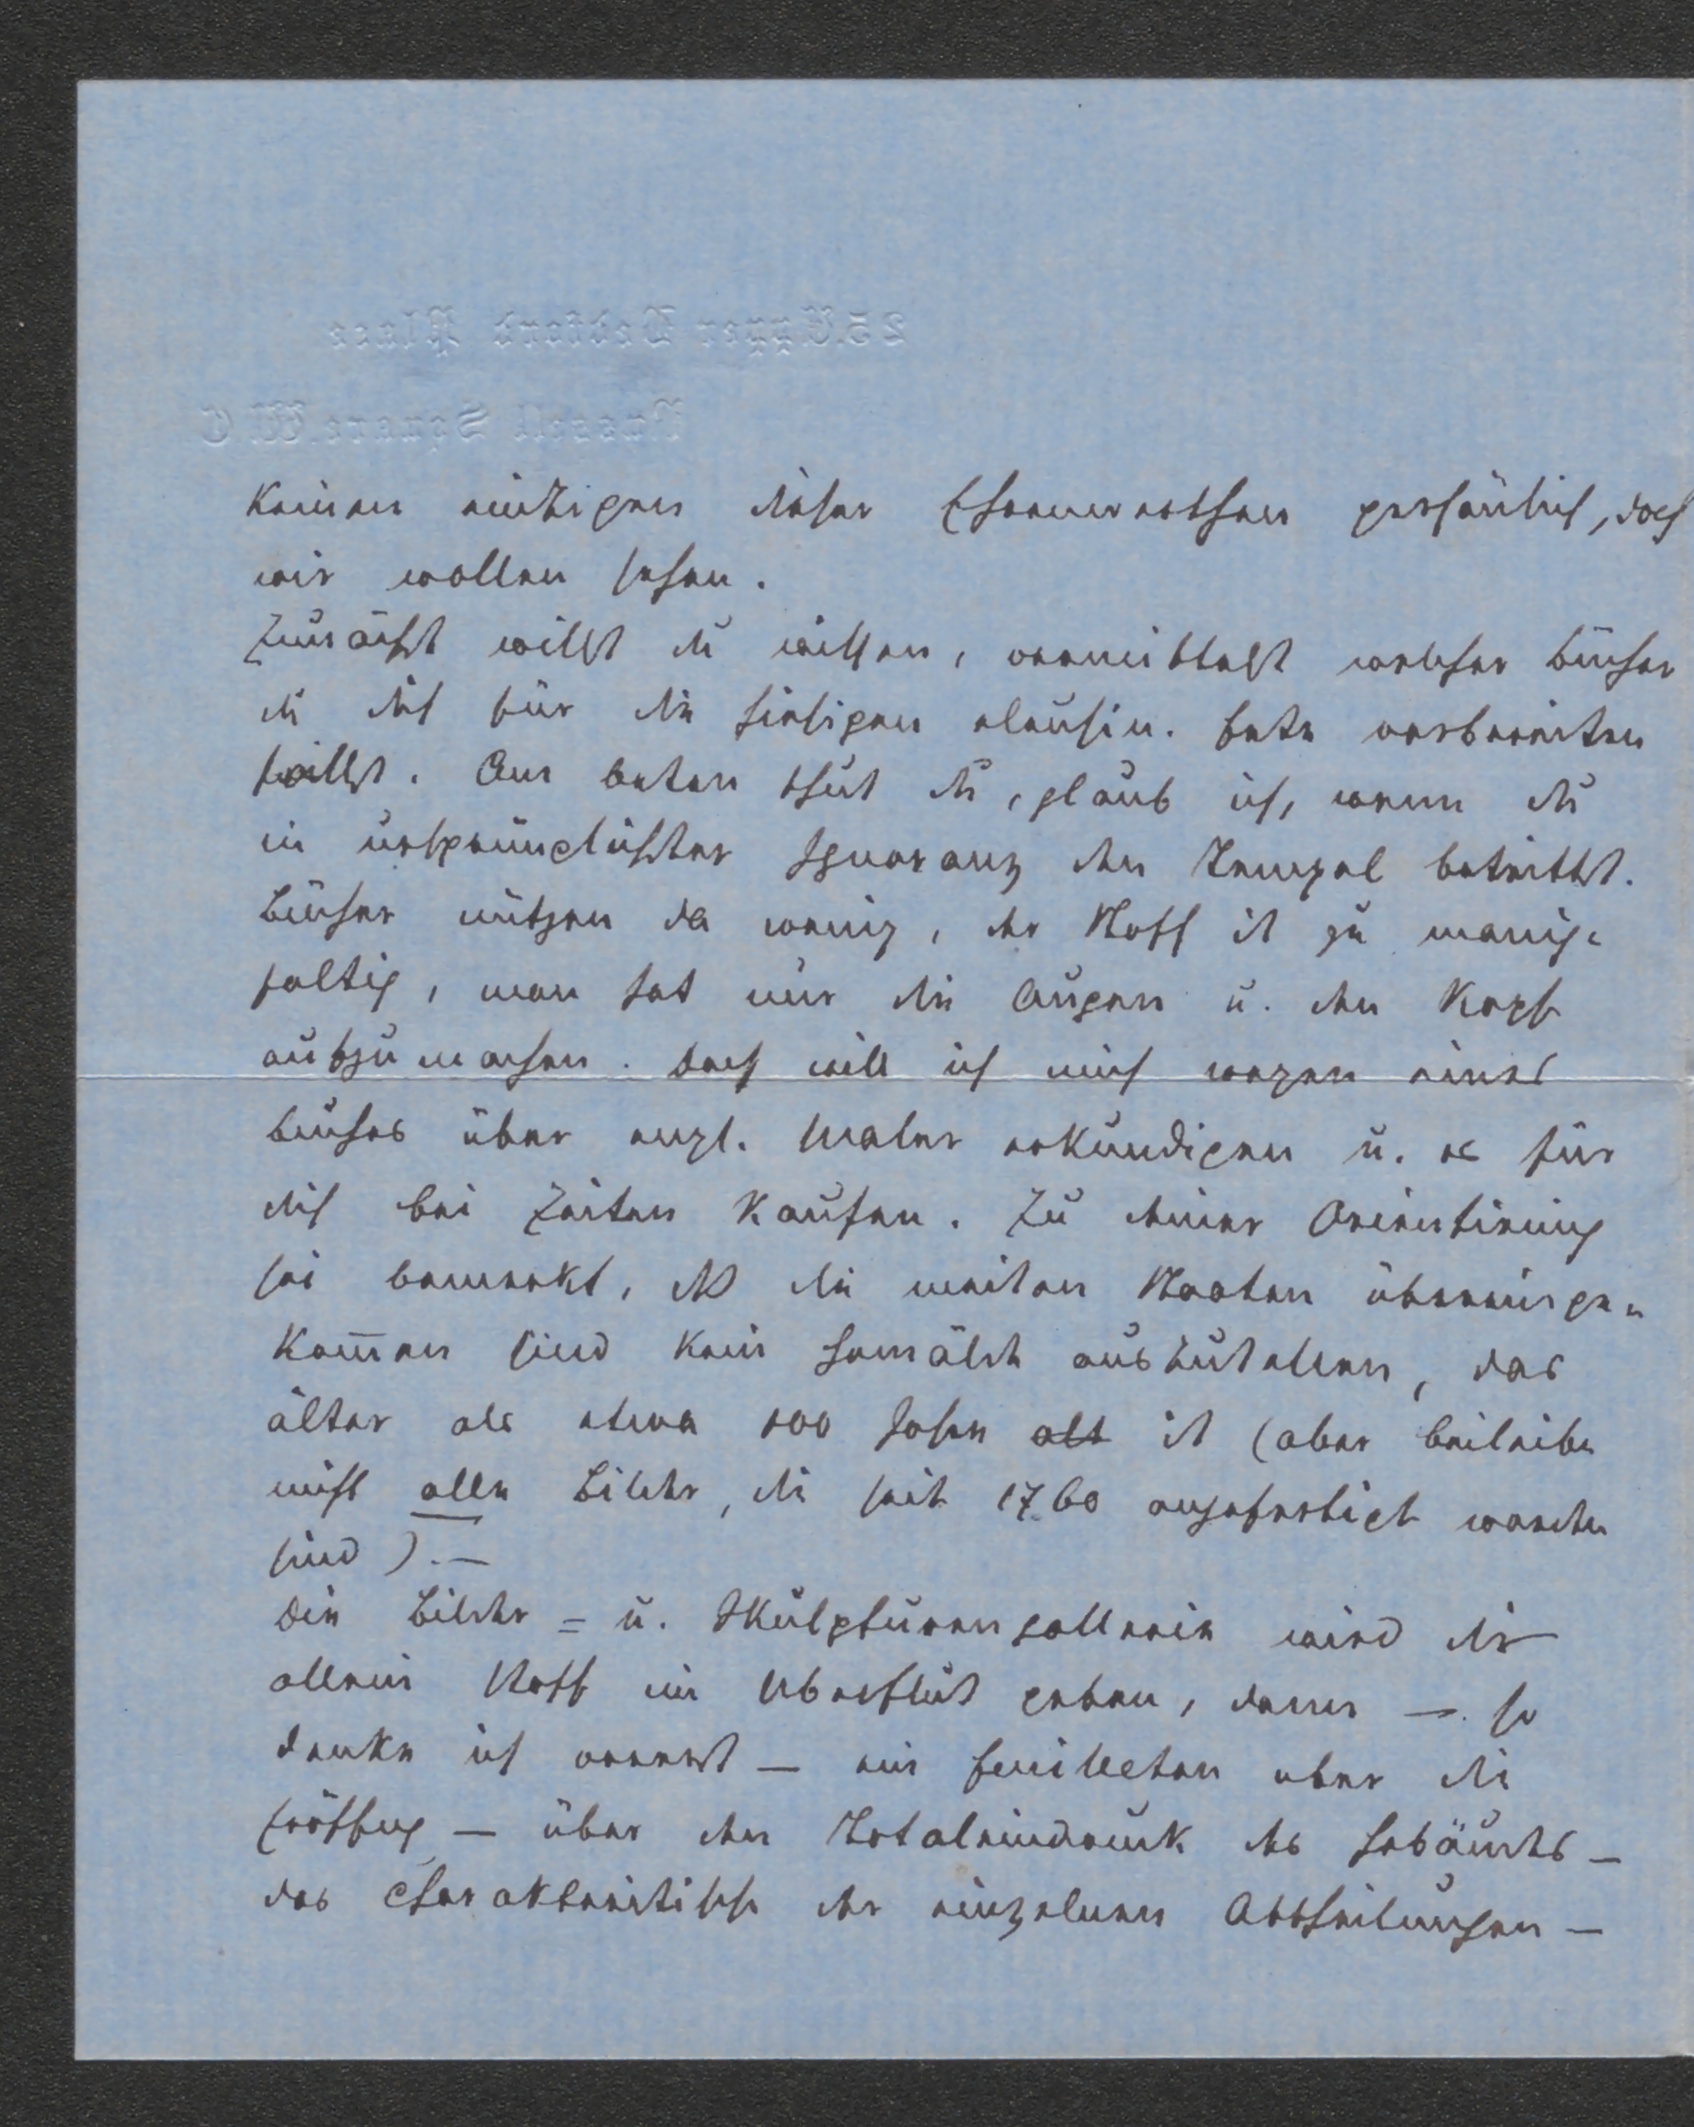 25. Upper Bedford Place
Russell Square. W. C
keinen einzigen dieser Ehrenwerthen persönlich, doch
wir wollen sehen.
Zunächst willst du wissen, vermittelst welcher Bücher
du dich für die hiesigen vorbereiten
sollst. Am besten thust du, glaub ich, wenn du
in ursprünglichster Ignoranz den Tempel betrittst.
Bücher nützen da wenig, der Stoff ist zu manig-
faltig, man hat nur die Augen u. den Kopf
aufzumachen. Doch will ich mich wegen eines
Buches über engl. Maler erkundigen u. es für
dich bei Zeiten kaufen. Zu deiner Orientirung
sei bemerkt, dß die meisten Staaten übereinge-
kom̅en sind kein Gemälde auszustellen, das
älter als etwa 100 Jahre alt ist (aber beileibe
nicht alle Bilder, die seit 1760 angefertigt worden
sind). —
Die Bilder = u. Skulpturengallerie wird dir
allein Stoff im Ueberfluß geben, denn — so
denke ich vorerst — ein Feuilleton über die
Eröffng — über den Totaleindruck des Gebäudes —
das Charakteristische der einzelnen Abtheilungen —